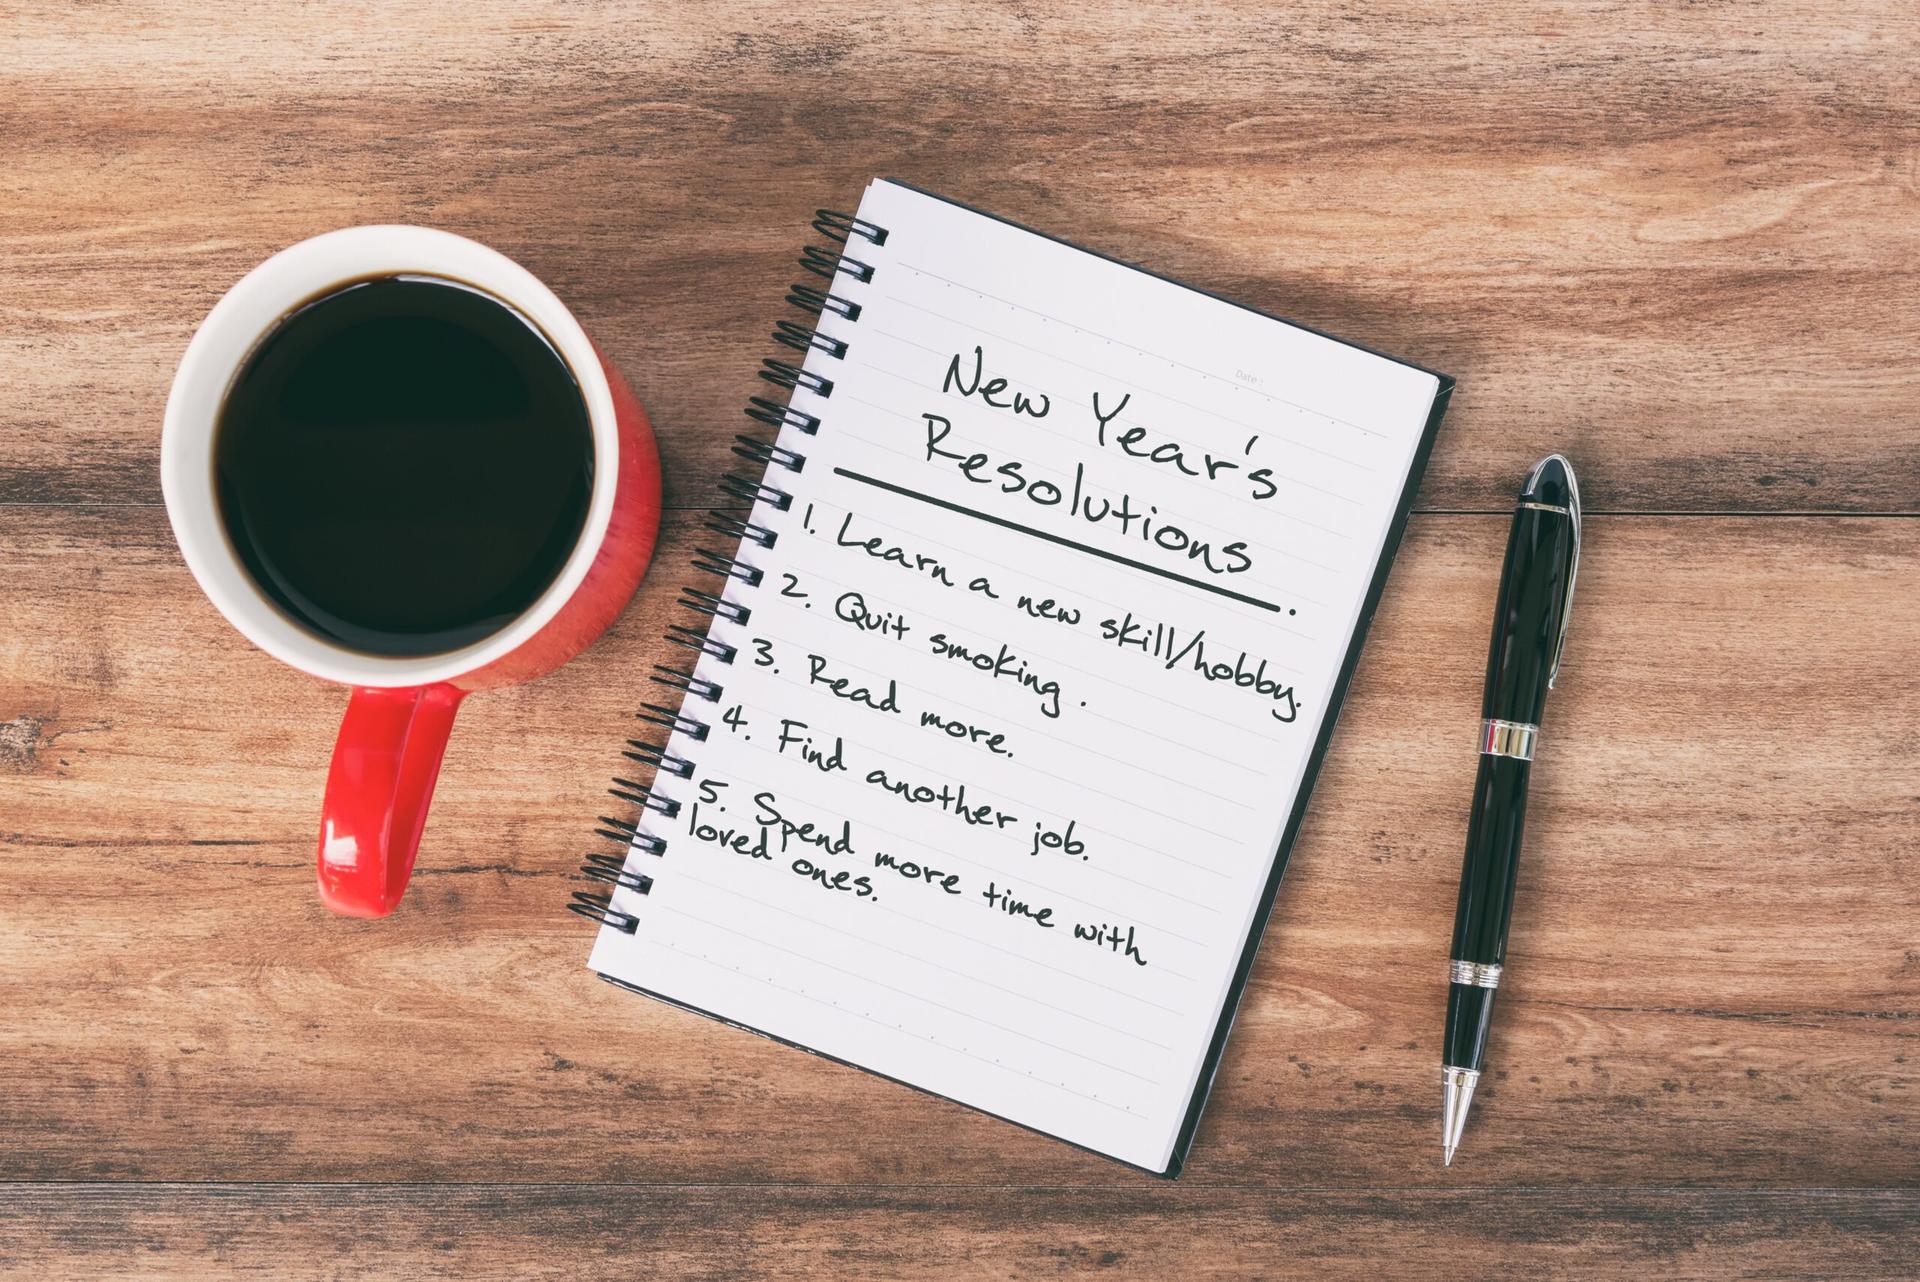 Date :
New Year's
Resolutions
1. Learn a new skill/hobby.
2. Quit smoking .
3. Read more.
4. Find another job.
5. Spend more time with
loved ones.